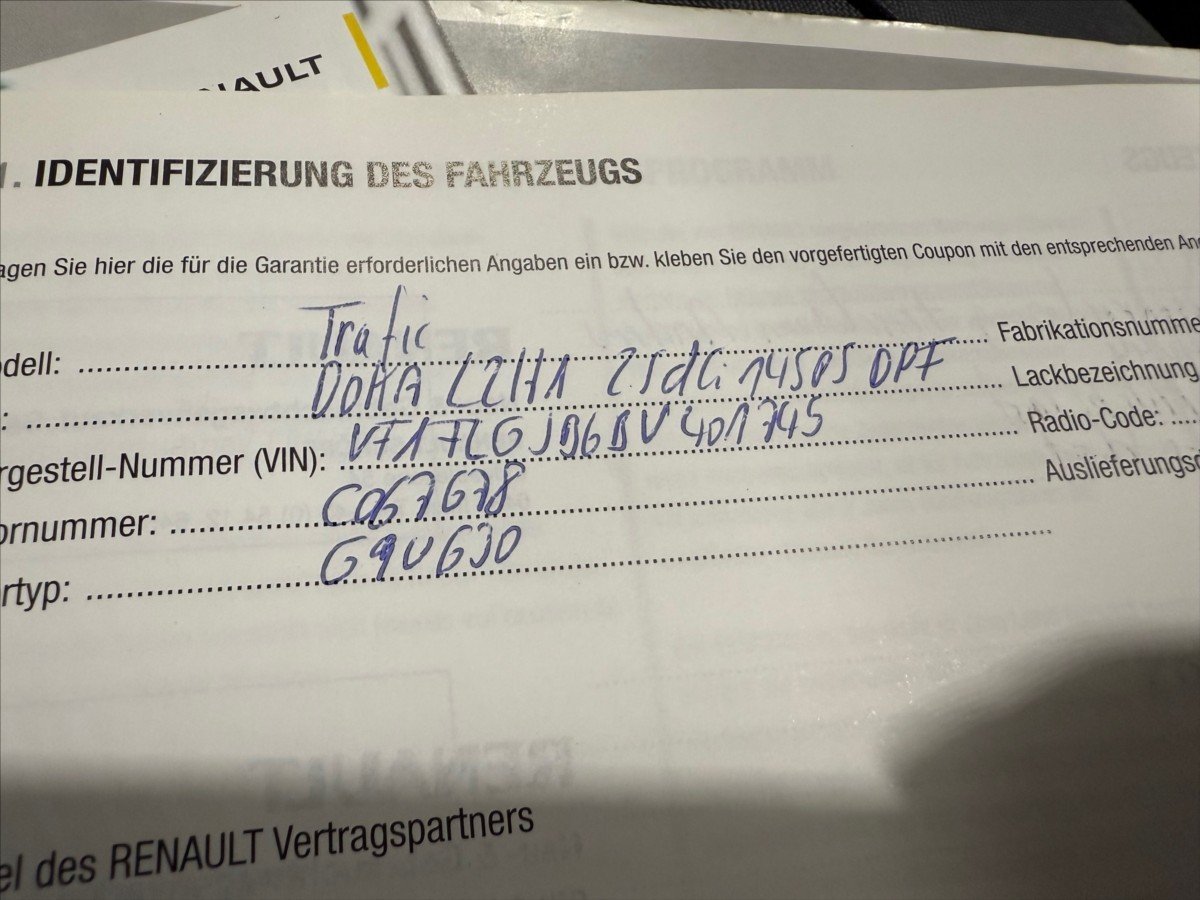 NAULT
1. IDENTIFIZIERUNG DES FAHRZEUGS
agen Sie hier die für die Garantie erforderlichen Angaben ein bzw. kleben Sie den vorgefertigten Coupon mit den entsprechenden An
dell: Trafic Fabrikationsnumme
: DOKA L2H1 2.5dCi 145PS DPF Lackbezeichnung,
rgestell-Nummer (VIN): VF17LGJD6BV401745 Radio-Code:
ornummer: C067678 Auslieferungsd
rtyp: G9U630
el des RENAULT Vertragspartners